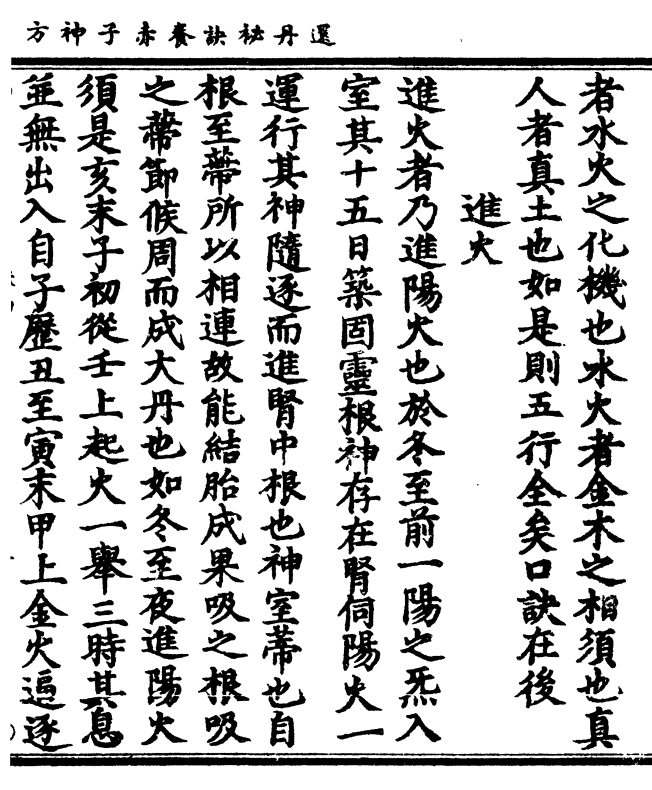 還丹祕訣養赤子神方
者水火之化機也水火者金木之相須也真
人者真土也如是則五行全矣口訣在後
進火
進火者乃進陽火也於冬至前一陽之炁入
室其十五日築固靈根神存在腎伺陽火一
運行其神隨逐而進腎中根也神室蔕也自
根至蔕所以相連故能結胎成果吸之根吸
之蔕節候周而成大丹也如冬至夜進陽火
須是亥末子初從壬上起火一舉三時其息
並無出入自子歷丑至寅末甲上金火逼逐